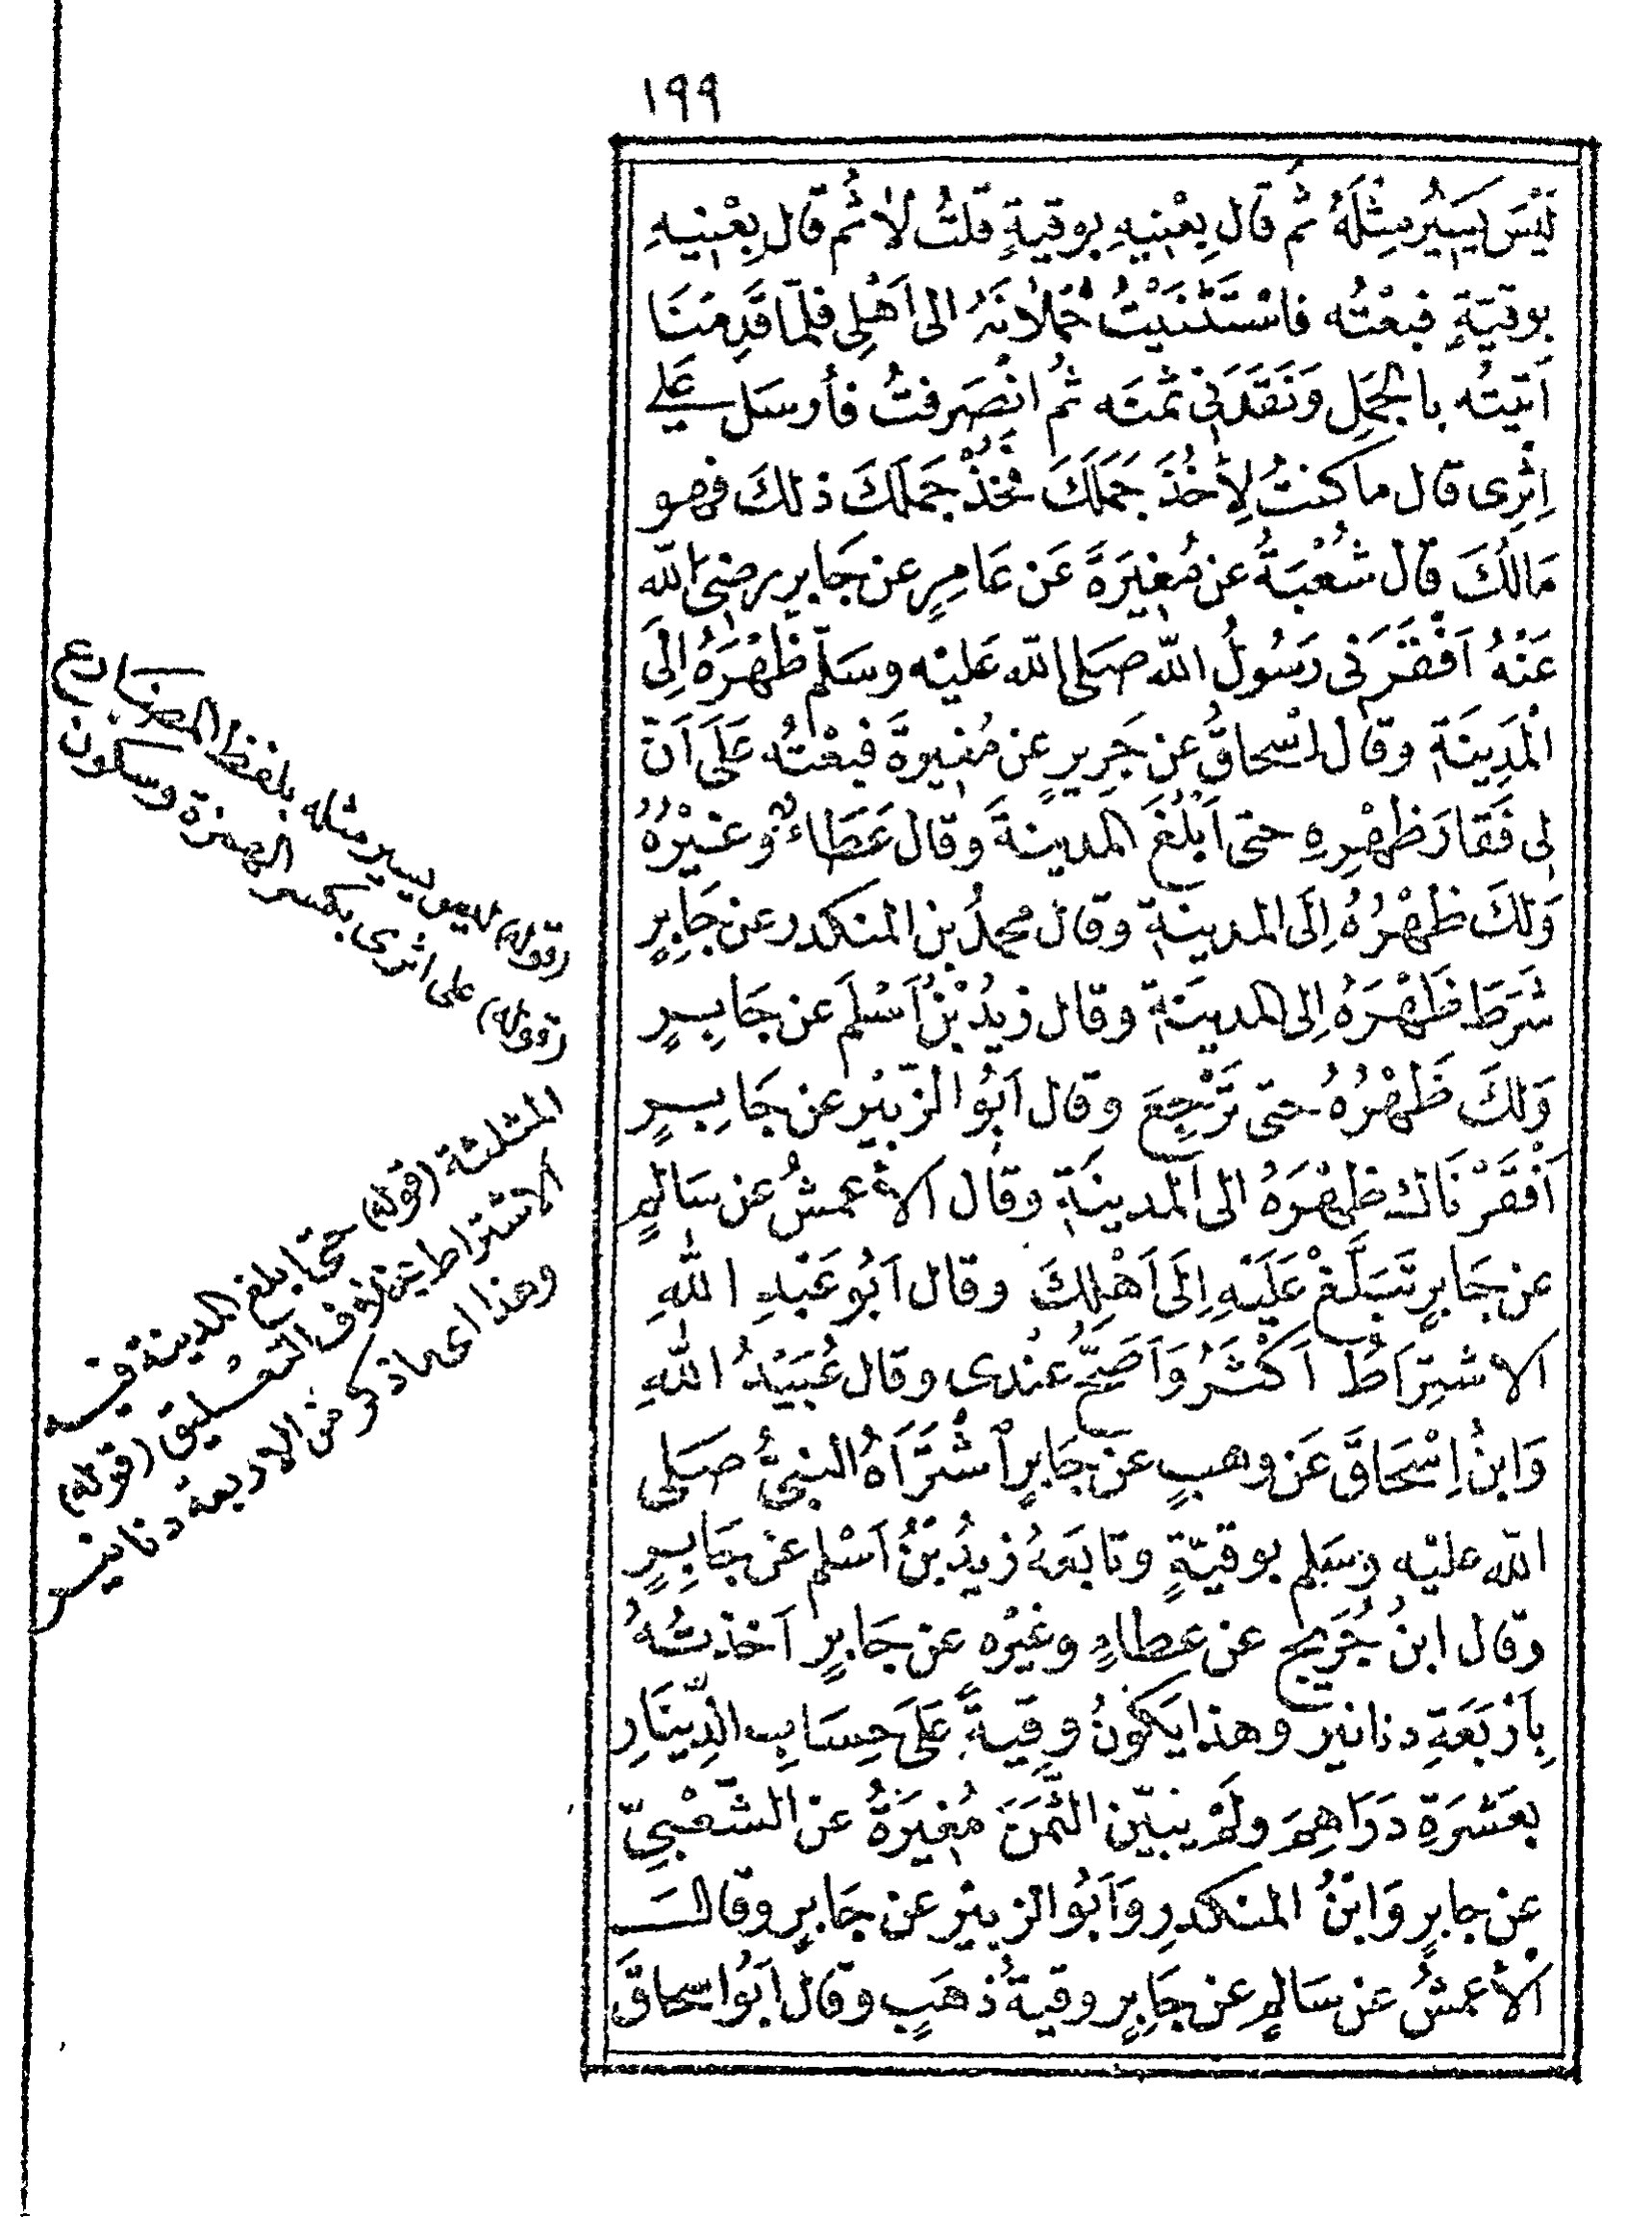 ١٩٩
لَيْسَ يَسِيْرُ مِثْلَهُ ثُمَّ قال بِعْنِيهِ بوقيةٍ قلتُ لا ثُم قال بِعْنِيهِ
بوقيّةٍ فبعْتُه فاسْتَثْنَيْتُ حُمْلانَهُ الى اَهْلِى فلمّا قَدِمْنَا
اَتيتُه بالجَمَلِ وَنَقَدَنِى ثَمَنَه ثُم انْصَرفتُ فأرسَل عَلى
اِثْرِى قال ما كنتُ لِآخُذَ جَمَلَكَ فَخُذْ جَمَلَكَ ذلكَ فهو
مَالُكَ قال شُعْبَةُ عن مُغِيْرَةَ عَن عَامِرٍ عن جَابِرٍ رضِىَ الله
عَنْهُ اَفْقَرَنى رَسُولُ الله صَلى الله عَليْه وسَلّم ظَهْرَهُ اِلَى
الْمَدِينَةِ وقال اِسْحاقُ عن جَرِيرٍ عن مُغِيرةَ فبعْتُه عَلَى اَنّ
لِى فَقَارَ ظَهْرِهِ حتى اَبْلُغَ المدينةَ وقال عَطَاءٌ وغَيْرُهُ
وَلكَ ظَهْرُهُ اِلَى المدينةِ وقال محمدُ بن المنكدر عن جَابِرٍ
شَرَطَ ظَهْرَهُ اِلى المدينَةِ وقال زيدُ بْنُ اَسْلَم عن جَابِرٍ
وَلكَ ظَهْرُهُ حتى تَرْجِعَ وقال اَبُو الزّبَيْر عن جَابِرٍ
اَفْقَرْنَاكَ ظَهْرَهُ الى المدينَةِ وقال الأعمشُ عن سَالِمٍ
عن جَابِرٍ تَبَلَّغْ عَلَيْهِ اِلَى اَهْلِكَ وقال اَبُو عَبْدِ اللهِ
الاشتِرَاطُ اَكْثَرُ وَاَصَحّ عِنْدى وقال عُبَيْدُ اللهِ
وَابنُ اِسْحَاقَ عَن وهبٍ عن جَابِرٍ اشْتَرَاهُ النبىُّ صَلى
الله عليْه وسَلم بوقيّةٍ وتابَعَهُ زيدُ بْنُ اَسْلم عن جَابِرٍ
وقال ابنُ جُرَيجٍ عن عطاءٍ وغيْرِه عن جَابِرٍ اَخَذْتُهُ
بِاَرْبَعَةِ دنانير وهذا يَكونُ وقِيةً عَلَى حِسَابِ الدِّينَارِ
بعَشَرَةِ دَرَاهِمَ ولَمْ يبيّن الثَّمَنَ مُغِيرَةُ عن الشّعْبِىّ
عن جابرٍ وَابْنُ المنكدرِ وَاَبُو الزبيْر عن جَابرٍ وقالَ
الأعمشُ عن سَالمٍ عن جَابِرٍ وقيةُ ذهَبٍ وقال اَبُو اسحاقَ
(قوله) ليس يسير مثله بلفظ المضارع
(قوله) على اثرى بكسر الهمزة وسكون
المثلثة (قوله) حتى ابلغ المدينة فيه
الاشتراط بخلاف التعليق (قوله)
وهذا اى ما ذكر من الاربعة دنانير